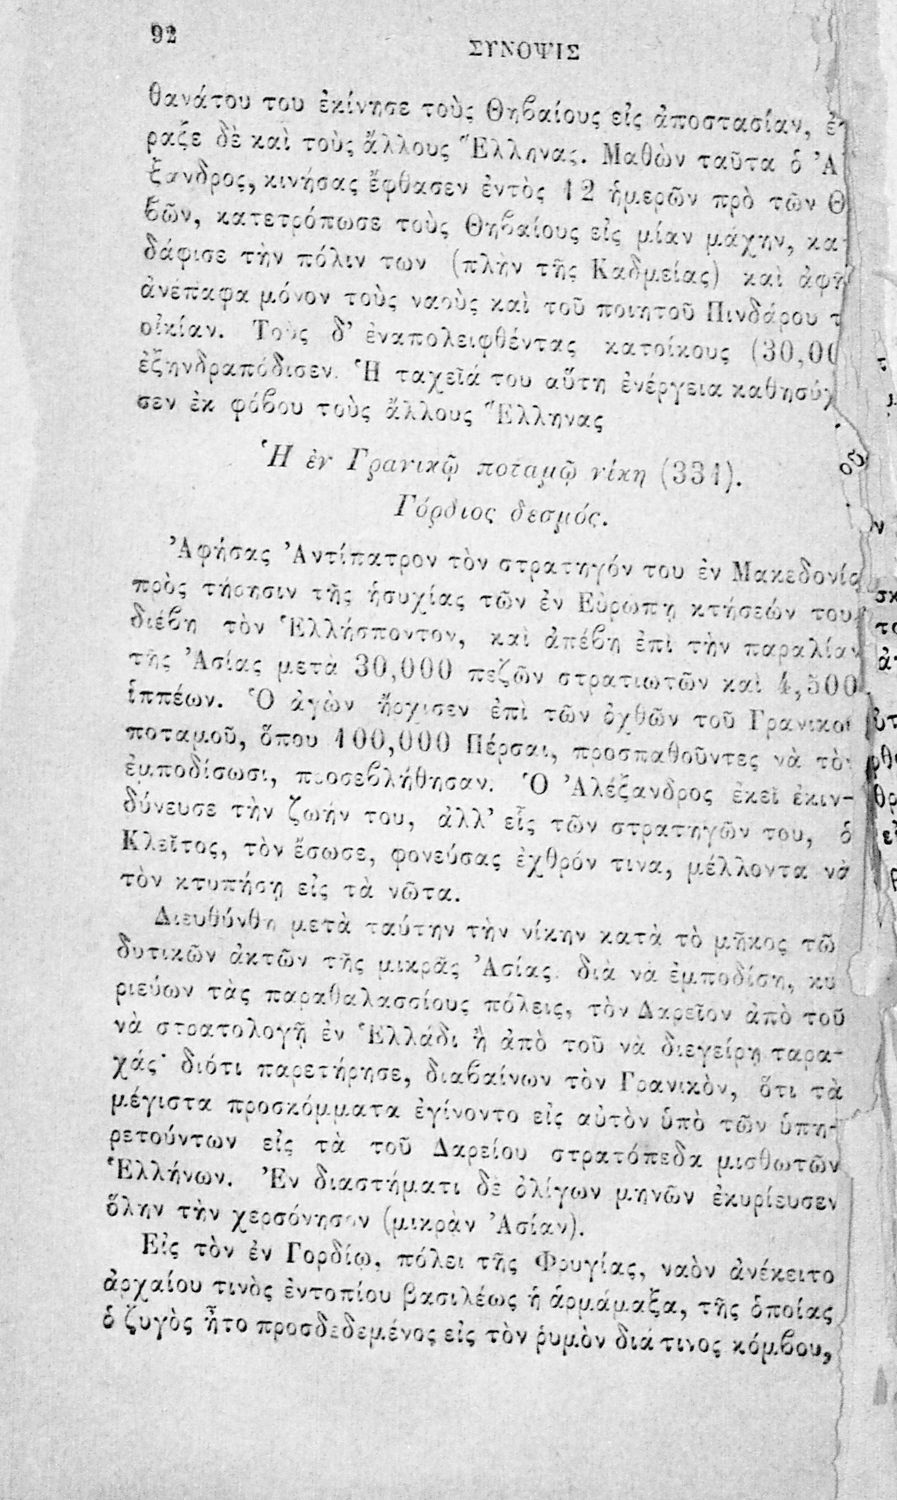 92
ΣΥΝΟΨΙΣ
θανάτου του ἐκίνησε τοὺς Θηβαίους εἰς ἀποστασίαν,
ραξε δὲ καὶ τοὺς ἄλλους Ἕλληνας. Μαθὼν ταῦτα ὁ Ἀ
ξανδρος, κινήσας ἔφθασεν ἐντὸς 12 ἡμερῶν πρὸ τῶν Θ
βῶν, κατετρόπωσε τοὺς Θηβαίους εἰς μίαν μάχην,
δάφισε τὴν πόλιν των (πλὴν τῆς Καδμείας) καὶ
ἀνέπαφα μόνον τοὺς ναοὺς καὶ τοῦ ποιητοῦ Πινδάρου τ
οἰκίαν. Τοὺς δ' ἐναπολειφθέντας κατοίκους (30,00
ἐξηνδραπόδισεν. Ἡ ταχεῖά του αὕτη ἐνέργεια καθησύχ
σεν ἐκ φόβου τοὺς ἄλλους Ἕλληνας
Ἡ ἐν Γρανικῷ ποταμῷ νίκη (334).
Γόρδιος δεσμός.
Ἀφήσας Ἀντίπατρον τὸν στρατηγόν του ἐν Μακεδονίᾳ
πρὸς τήρησιν τῆς ἡσυχίας τῶν ἐν Εὐρώπῃ κτήσεών του,
διέβη τὸν Ἑλλήσποντον, καὶ ἀπέβη ἐπὶ τὴν παραλίαν
τῆς Ἀσίας μετὰ 30,000 πεζῶν στρατιωτῶν καὶ 4,500
ἱππέων. Ὁ ἀγὼν ἤρχισεν ἐπὶ τῶν ὀχθῶν τοῦ Γρανικοῦ
ποταμοῦ, ὅπου 100,000 Πέρσαι, προσπαθοῦντες νὰ τὸν
ἐμποδίσωσι, προσεβλήθησαν. Ὁ Ἀλέξανδρος ἐκεῖ ἐκιν-
δύνευσε τὴν ζωήν του, ἀλλ' εἷς τῶν στρατηγῶν του, ὁ
Κλεῖτος, τὸν ἔσωσε, φονεύσας ἐχθρόν τινα, μέλλοντα νὰ
τὸν κτυπήσῃ εἰς τὰ νῶτα.
Διευθύνθη μετὰ ταύτην τὴν νίκην κατὰ τὸ μῆκος τῶ
δυτικῶν ἀκτῶν τῆς μικρᾶς Ἀσίας διὰ νὰ ἐμποδίσῃ, κυ
ριεύων τὰς παραθαλασσίους πόλεις, τὸν Δαρεῖον ἀπὸ τοῦ
νὰ στρατολογῇ ἐν Ἑλλάδι ἢ ἀπὸ τοῦ νὰ διεγείρῃ ταρα-
χάς· διότι παρετήρησε, διαβαίνων τὸν Γρανικὸν, ὅτι τὰ
μέγιστα προσκόμματα ἐγίνοντο εἰς αὐτὸν ὑπὸ τῶν ὑπη-
ρετούντων εἰς τὰ τοῦ Δαρείου στρατόπεδα μισθωτῶν
Ἑλλήνων. Ἐν διαστήματι δὲ ὀλίγων μηνῶν ἐκυρίευσεν
ὅλην τὴν χερσόνησον (μικρὰν Ἀσίαν).
Εἰς τὸν ἐν Γορδίῳ, πόλει τῆς Φρυγίας, ναὸν ἀνέκειτο
ἀρχαίου τινὸς ἐντοπίου βασιλέως ἡ ἁρμάμαξα, τῆς ὁποίας
ὁ ζυγὸς ἦτο προσδεδεμένος εἰς τὸν ῥυμὸν διά τινος κόμβου,